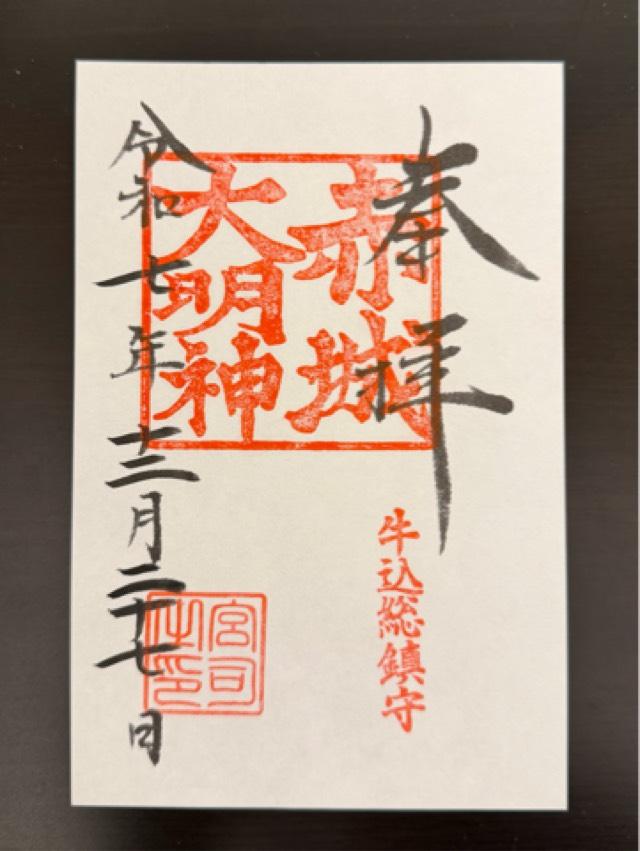 奉拝
赤城
大明神
牛込総鎮守
令和七年十二月二十七日
宮司
之印